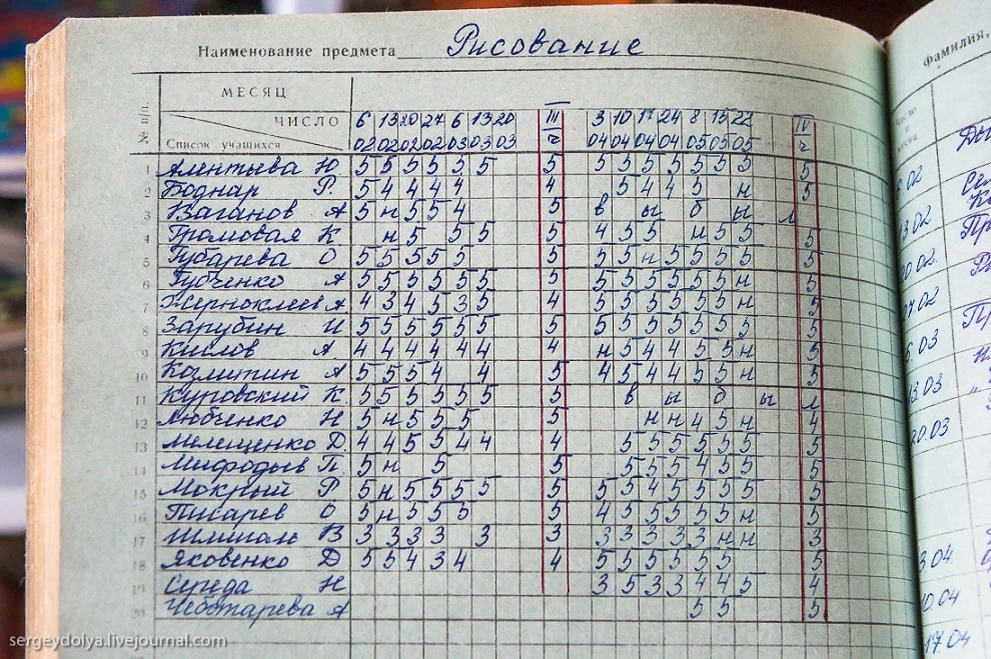 Наименование предмета Рисование
Фамилия,
МЕСЯЦ
№ п/п.
ЧИСЛО 6 13 20 27 6 13 20 III 3 10 17 24 8 15 22 IV
Список учащихся 02 02 02 02 03 03 03 ч 04 04 04 04 05 05 05 ч
1 Н. 5 5 5 5 5 5 5 5 5 5 5 5 5 5 5
2 Боднар Р. 5 4 4 4 4 4 5 4 4 5 н 5
3 Ваганов А 5 н 5 5 4 5 в ы б ы л
4 Громовая К н 5 5 5 5 4 5 5 н 5 5 5
5 Губарева О 5 5 5 5 5 5 5 5 н 5 5 5 5 5
6 Губченко А 5 5 5 5 5 5 5 5 5 5 5 5 5 н 5
7 Жерноклеев А 4 3 4 5 3 5 4 5 5 5 5 5 5 н 5
8 Зарубин И 5 5 5 5 5 5 5 5 5 5 5 5 5 5 5
9 Кислов А 4 4 4 4 4 4 4 н 5 4 4 5 5 н 5
10 Калитин А 5 5 5 4 4 5 4 5 4 4 5 5 н 5
11 Куровский К. 5 5 5 5 5 5 5 в ы б ы л
12 Любченко Н 5 н 5 5 5 5 н н 4 5 н 4
13 Мелещенко Д. 4 4 5 5 4 4 4 5 5 5 5 5 5 5
14 П. 5 н 5 5 5 5 5 4 5 5 5
15 Мокрый Р 5 н 5 5 5 5 5 5 5 4 5 5 5 5 5
16 Писарев О 5 н 5 5 5 5 4 5 5 5 5 5 н 5
17 В 3 3 3 3 3 3 3 3 3 3 3 н н 3
18 Яковенко Д 5 5 4 3 4 4 5 5 5 5 5 5 5
19 Середа Н 3 5 3 3 4 4 5 4
20 Чеботарева А 5 5 5
sergeydolya.livejournal.com